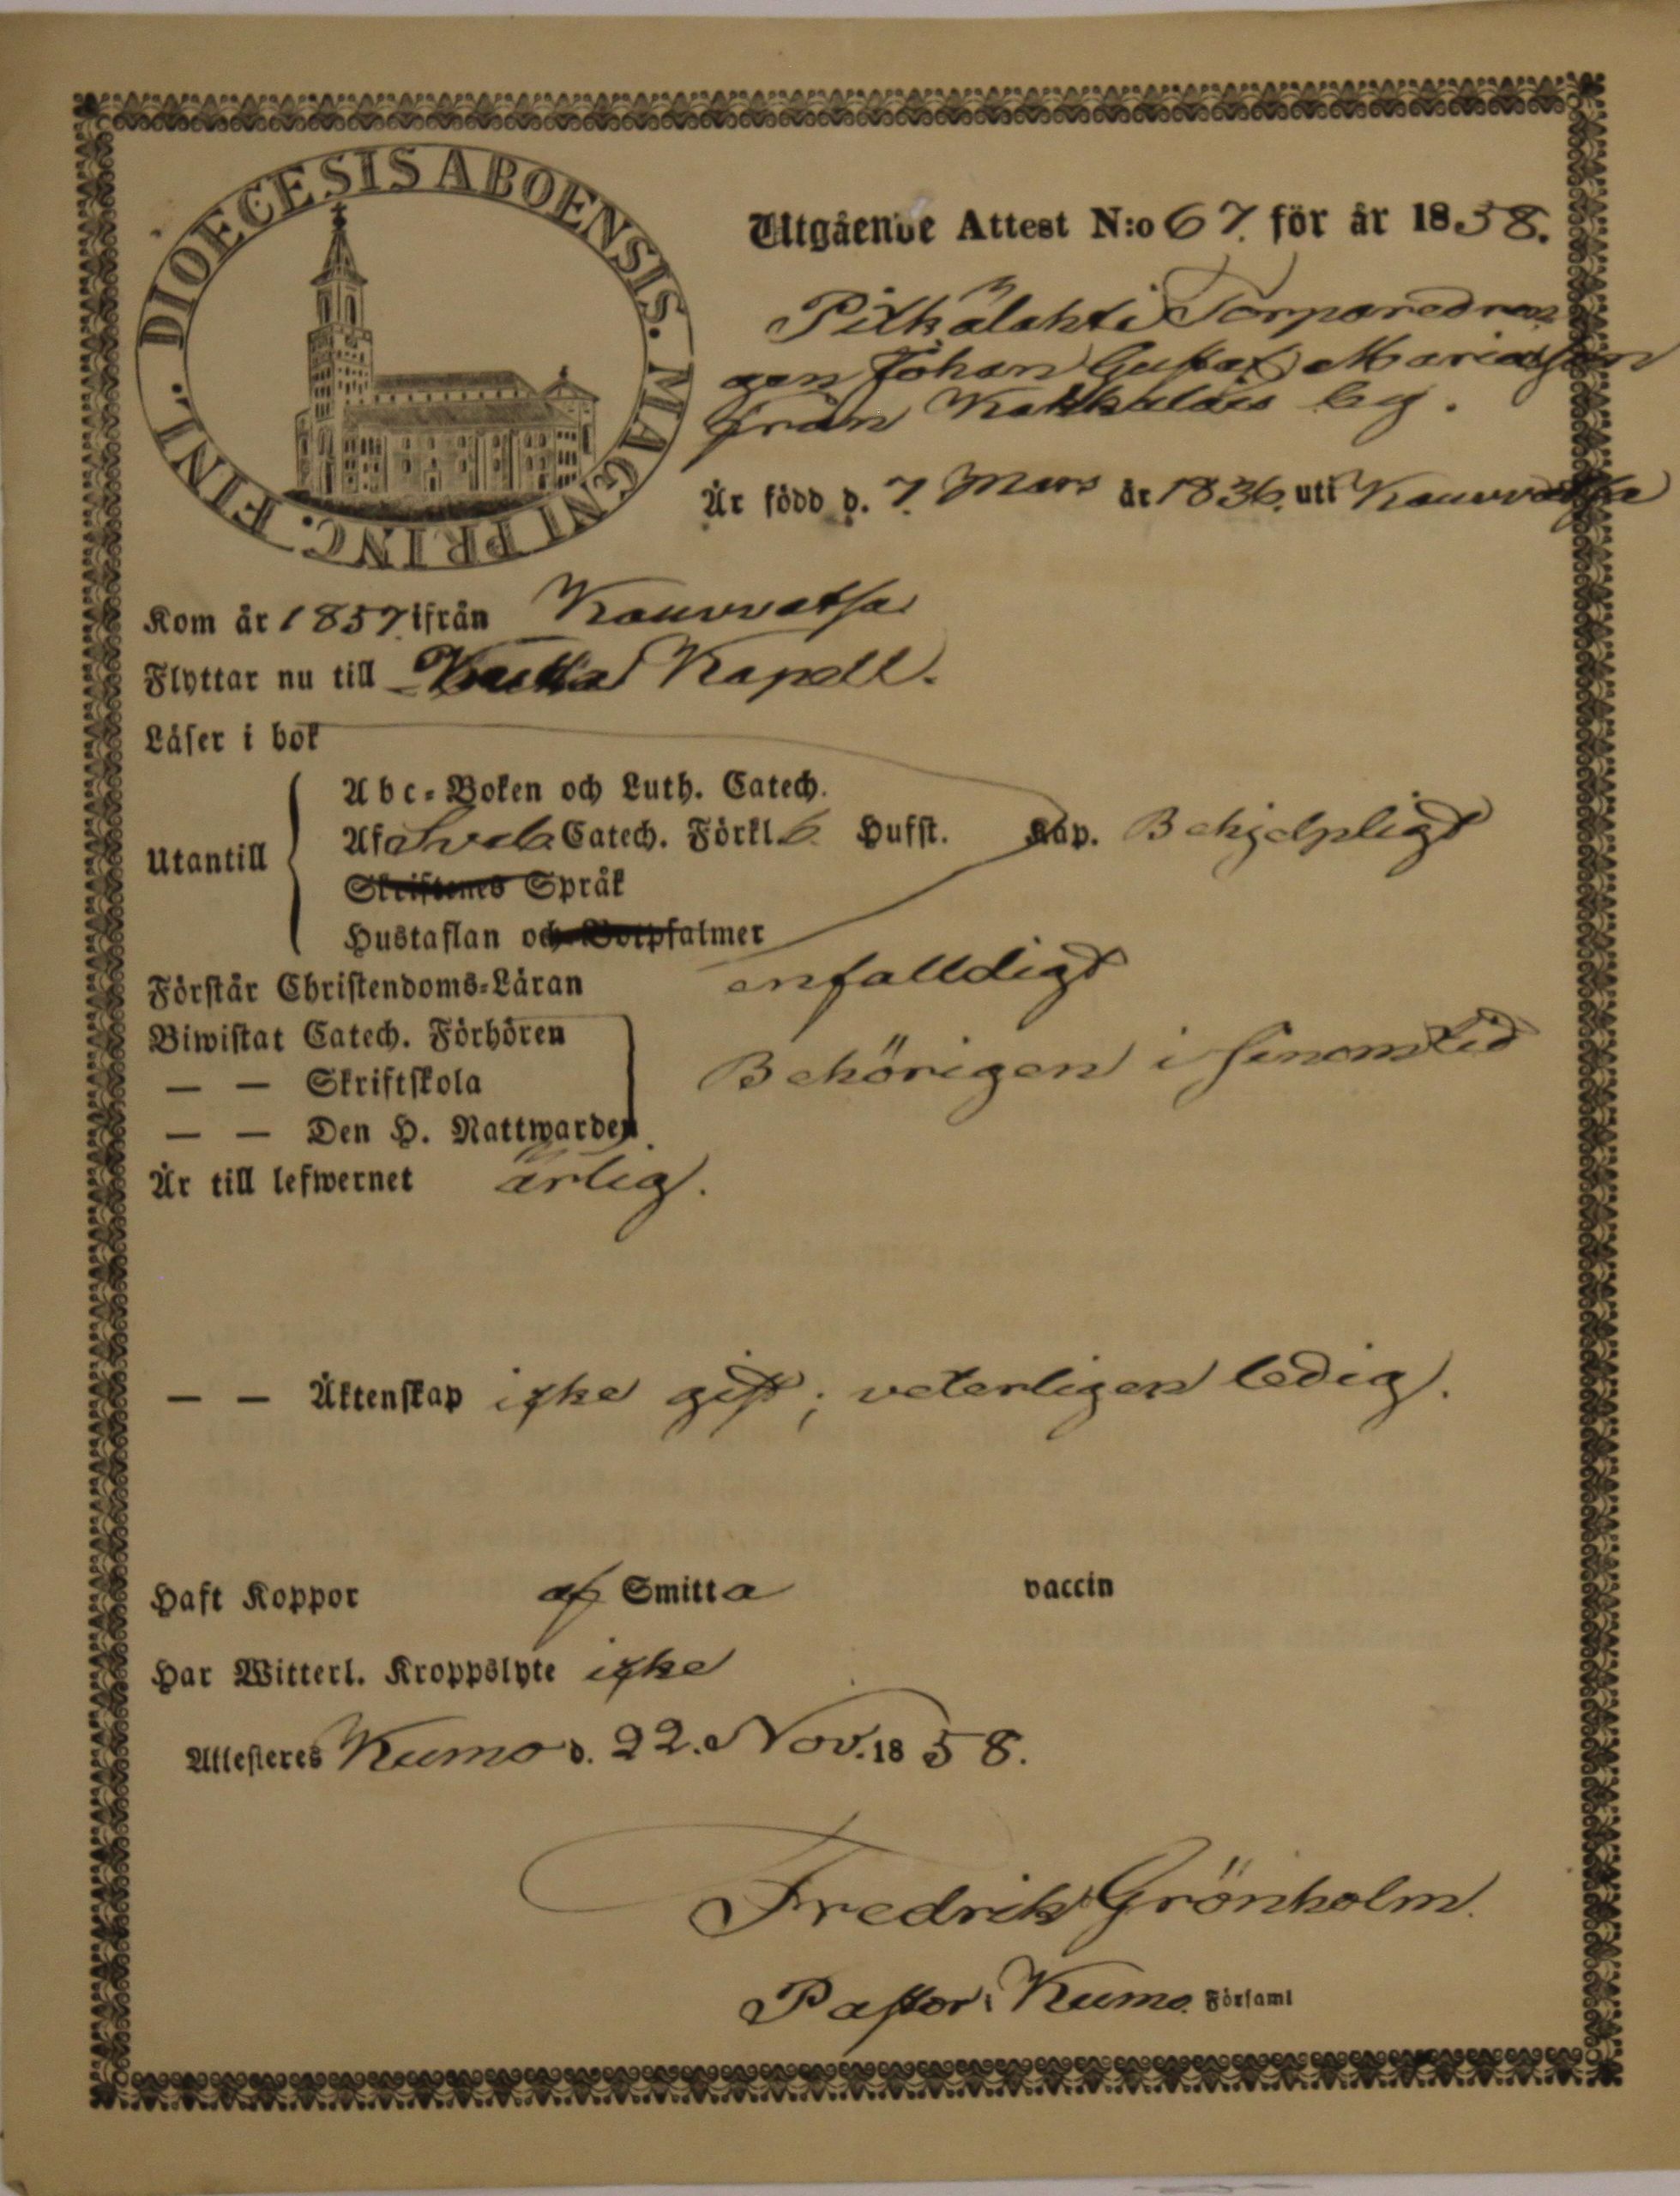 DIOECESIS ABOENSIS. MAGNI PRINC. FINL.
Utgående Attest N:o 67. för år 1858.
Pitkälahti Torparedren
gen Johan Gustaf Mariasson
från Kakkulais by.
Är född d. 7. Mars år 1836. uti Kauvvatsa
Kom år 1857. ifrån Kauvvatsa
Flyttar nu till Kapell.
Läser i bok
Utantill
Abc-Boken och Luth. Catech.
Af Sveb. Catech. Förkl. 6. Hufst. Kap. Behjelpligt
Skriftenes Språk
Hustaflan och Botpsalmer
Förstår Christendoms-Läran enfalldigt
Biwistat Catech. Förhören
— — Skriftskola Behörigen i sinom tid
— — Den H. Nattwarden
Är till lefwernet ärlig.
— — Äktenskap icke gift; veterligen ledig.
Haft Koppor af Smitta vaccin
Har Witterl. Kroppslyte icke
Attesteres Kumo d. 22. Nov. 1858.
Fredrik Grönholm.
Pastor i Kumo Församl